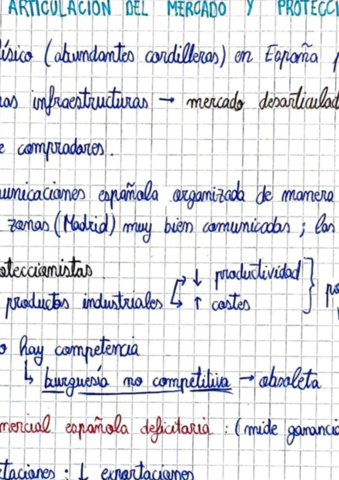 ARTICULACIÓN DEL MERCADO Y PROTECCI
ísico (abundantes cordilleras) en España
as infraestructuras → mercado desarticulad
e compradores.
unicaciones española organizada de manera
zonas (Madrid) muy bien comunicadas ; las
oteccionistas
↓ productividad
productos industriales ↑ costes
o hay competencia
↳ burguesía no competitiva → obsoleta
mercial española deficitaria : (mide gananci
rtaciones : ↓ exportaciones